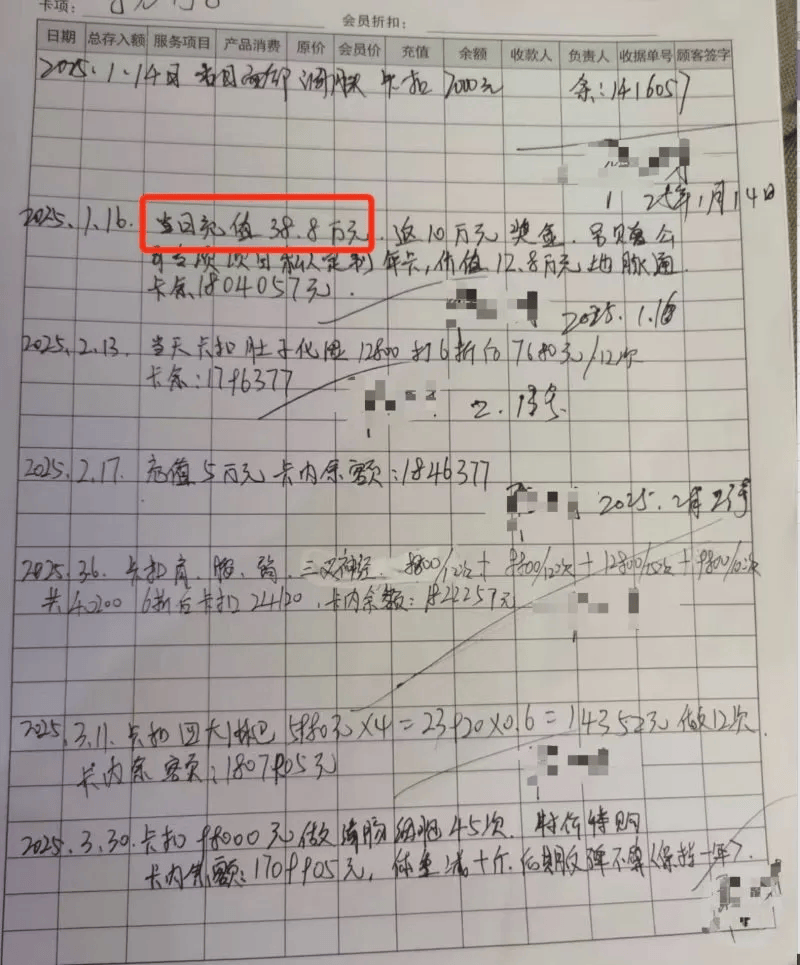 卡项：
会员折扣：
日期 总存入额 服务项目 产品消费 原价 会员价 充值 余额 收款人 负责人 收据单号 顾客签字
2025.1.14日 卡扣 7000元 余：1416057
2025年1月14日
2025.1.16. 当日充值 38.8万元. 返10万元奖金.
项目私人定制年卡，价值12.8万元 地脉通
卡余1804057元.
2025.1.16
2025.2.13. 当天卡扣肚子化 12800打6折后7680元/12次
卡余：1796377
2.13号
2025.2.17. 充值5万元 卡内余额：1846377
2025.2月
2025.3.6. 卡扣肩、腰、三叉神经. 9800/12次+9800/12次+12800/ 次+9800/ 次
共40200 6折后卡扣24120，卡内余额：1822257元
2025.3.11. 卡扣四大淋巴5980元×4=23920×0.6=14352元 做12次.
卡内余额：1807905元
2025.3.30. 卡扣98000元做 45次. 特价特购
卡内余额：1709905元，体重减十斤. 后期反弹不算（保持一年）.